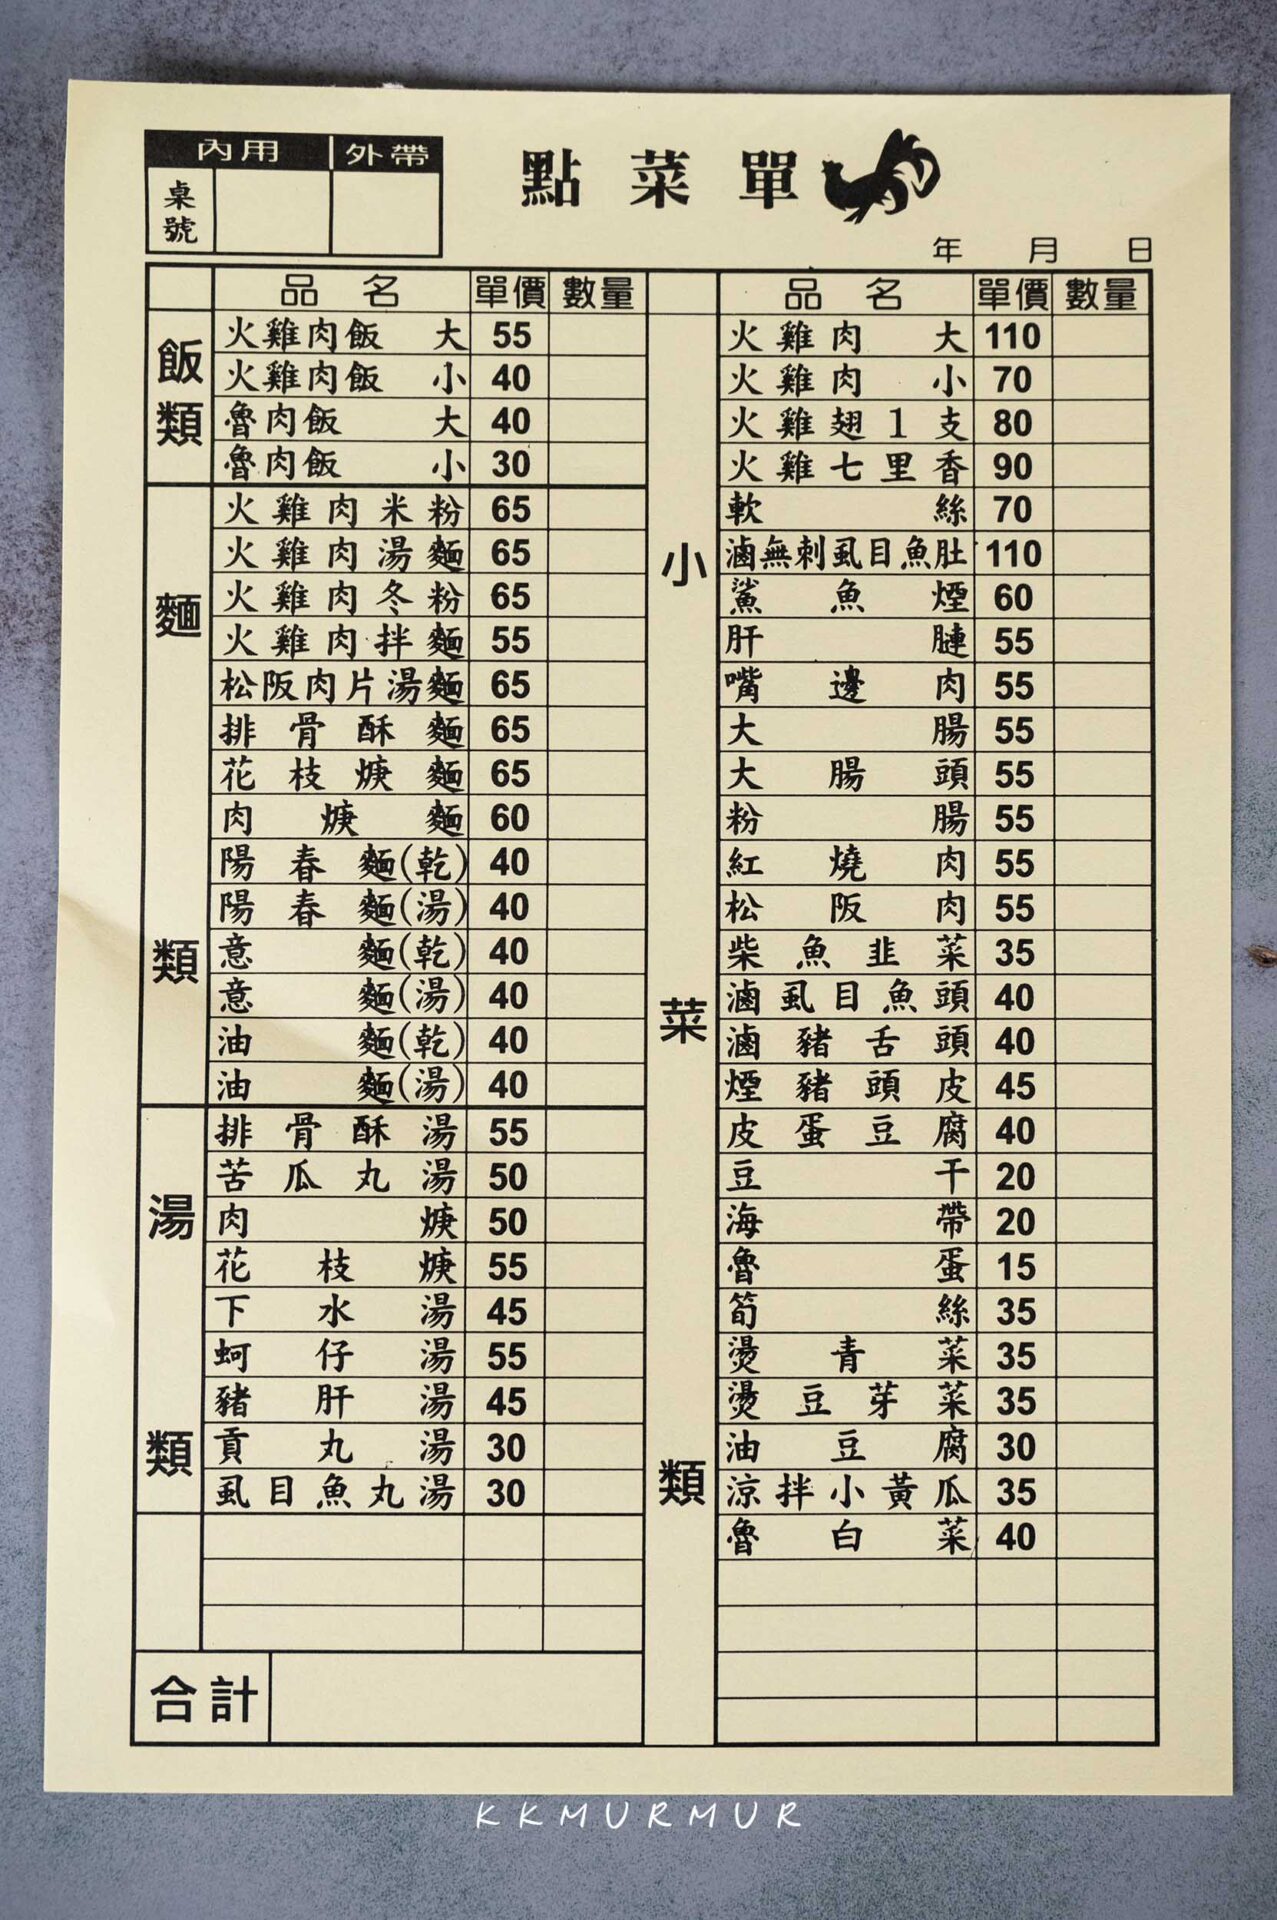 內用 外帶
桌號
點菜單
年 月 日
品名 單價 數量
飯類
火雞肉飯 大 55
火雞肉飯 小 40
魯肉飯 大 40
魯肉飯 小 30
麵類
火雞肉米粉 65
火雞肉湯麵 65
火雞肉冬粉 65
火雞肉拌麵 55
松阪肉片湯麵 65
排骨酥麵 65
花枝焿麵 65
肉焿麵 60
陽春麵(乾) 40
陽春麵(湯) 40
意麵(乾) 40
意麵(湯) 40
油麵(乾) 40
油麵(湯) 40
湯類
排骨酥湯 55
苦瓜丸湯 50
肉焿 50
花枝焿 55
下水湯 45
蚵仔湯 55
豬肝湯 45
貢丸湯 30
虱目魚丸湯 30
合計
品名 單價 數量
小菜類
火雞肉 大 110
火雞肉 小 70
火雞翅1支 80
火雞七里香 90
軟絲 70
滷無刺虱目魚肚 110
鯊魚煙 60
肝腱 55
嘴邊肉 55
大腸 55
大腸頭 55
粉腸 55
紅燒肉 55
松阪肉 55
柴魚韭菜 35
滷虱目魚頭 40
滷豬舌頭 40
煙豬頭皮 45
皮蛋豆腐 40
豆干 20
海帶 20
魯蛋 15
筍絲 35
燙青菜 35
燙豆芽菜 35
油豆腐 30
涼拌小黃瓜 35
魯白菜 40
KKMURMUR